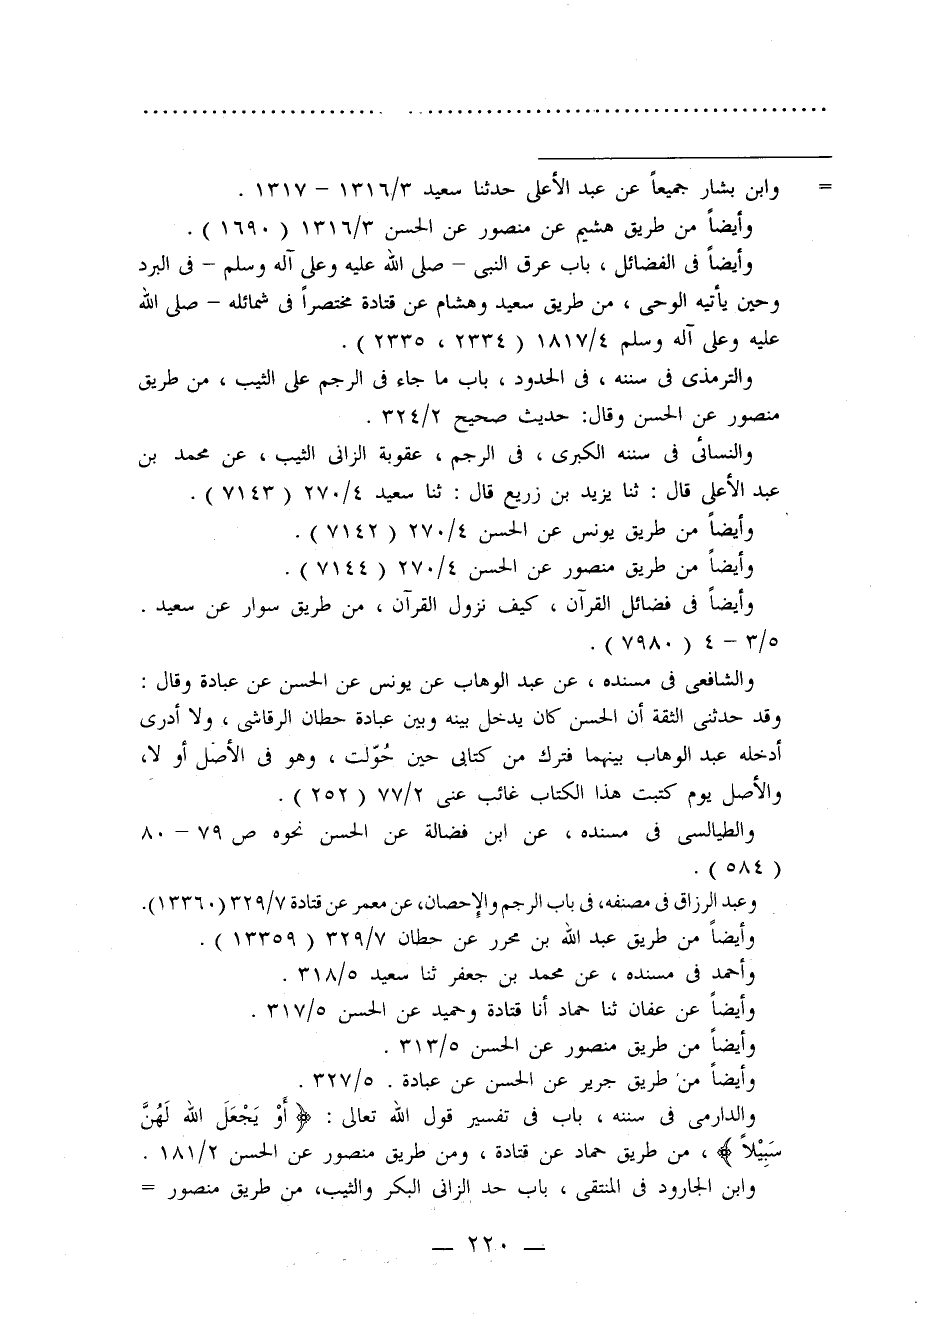 = وابن بشار جميعاً عن عبد الأعلى حدثنا سعيد ١٣١٦/٣ – ١٣١٧ .
وأيضاً من طريق هشيم عن منصور عن الحسن ١٣١٦/٣ ( ١٦٩٠ ) .
وأيضاً فى الفضائل ، باب عرق النبى – صلى الله عليه وعلى آله وسلم – فى البرد
وحين يأتيه الوحى ، من طريق سعيد وهشام عن قتادة مختصراً فى شمائله – صلى الله
عليه وعلى آله وسلم ١٨١٧/٤ ( ٢٣٣٤ ، ٢٣٣٥ ) .
والترمذى فى سننه ، فى الحدود ، باب ما جاء فى الرجم على الثيب ، من طريق
منصور عن الحسن وقال: حديث صحيح ٣٢٤/٢ .
والنسائى فى سننه الكبرى ، فى الرجم ، عقوبة الزانى الثيب ، عن محمد بن
عبد الأعلى قال : ثنا يزيد بن زريع قال : ثنا سعيد ٢٧٠/٤ ( ٧١٤٣ ) .
وأيضاً من طريق يونس عن الحسن ٢٧٠/٤ ( ٧١٤٢ ) .
وأيضاً من طريق منصور عن الحسن ٢٧٠/٤ ( ٧١٤٤ ) .
وأيضاً فى فضائل القرآن ، كيف نزول القرآن ، من طريق سوار عن سعيد .
٣/٥ – ٤ ( ٧٩٨٠ ) .
والشافعى فى مسنده ، عن عبد الوهاب عن يونس عن الحسن عن عبادة وقال :
وقد حدثنى الثقة أن الحسن كان يدخل بينه وبين عبادة حطان الرقاشى ، ولا أدرى
أدخله عبد الوهاب بينهما فترك من كتابى حين حُوّلت ، وهو فى الأصل أو لا،
والأصل يوم كتبت هذا الكتاب غائب عنى ٧٧/٢ ( ٢٥٢ ) .
والطيالسى فى مسنده ، عن ابن فضالة عن الحسن نحوه ص ٧٩ – ٨٠
( ٥٨٤ ) .
وعبد الرزاق فى مصنفه، فى باب الرجم والإحصان، عن معمر عن قتادة ٣٢٩/٧ (١٣٣٦٠).
وأيضاً من طريق عبد الله بن محرر عن حطان ٣٢٩/٧ ( ١٣٣٥٩ ) .
وأحمد فى مسنده ، عن محمد بن جعفر ثنا سعيد ٣١٨/٥ .
وأيضاً عن عفان ثنا حماد أنا قتادة وحميد عن الحسن ٣١٧/٥ .
وأيضاً من طريق منصور عن الحسن ٣١٣/٥ .
وأيضاً من طريق جرير عن الحسن عن عبادة . ٣٢٧/٥ .
والدارمى فى سننه ، باب فى تفسير قول الله تعالى : ﴿ أَوْ يَجْعَلَ الله لَهُنَّ
سَبِيْلاً ﴾ ، من طريق حماد عن قتادة ، ومن طريق منصور عن الحسن ١٨١/٢ .
وابن الجارود فى المنتقى ، باب حد الزانى البكر والثيب، من طريق منصور =
— ٢٢٠ —